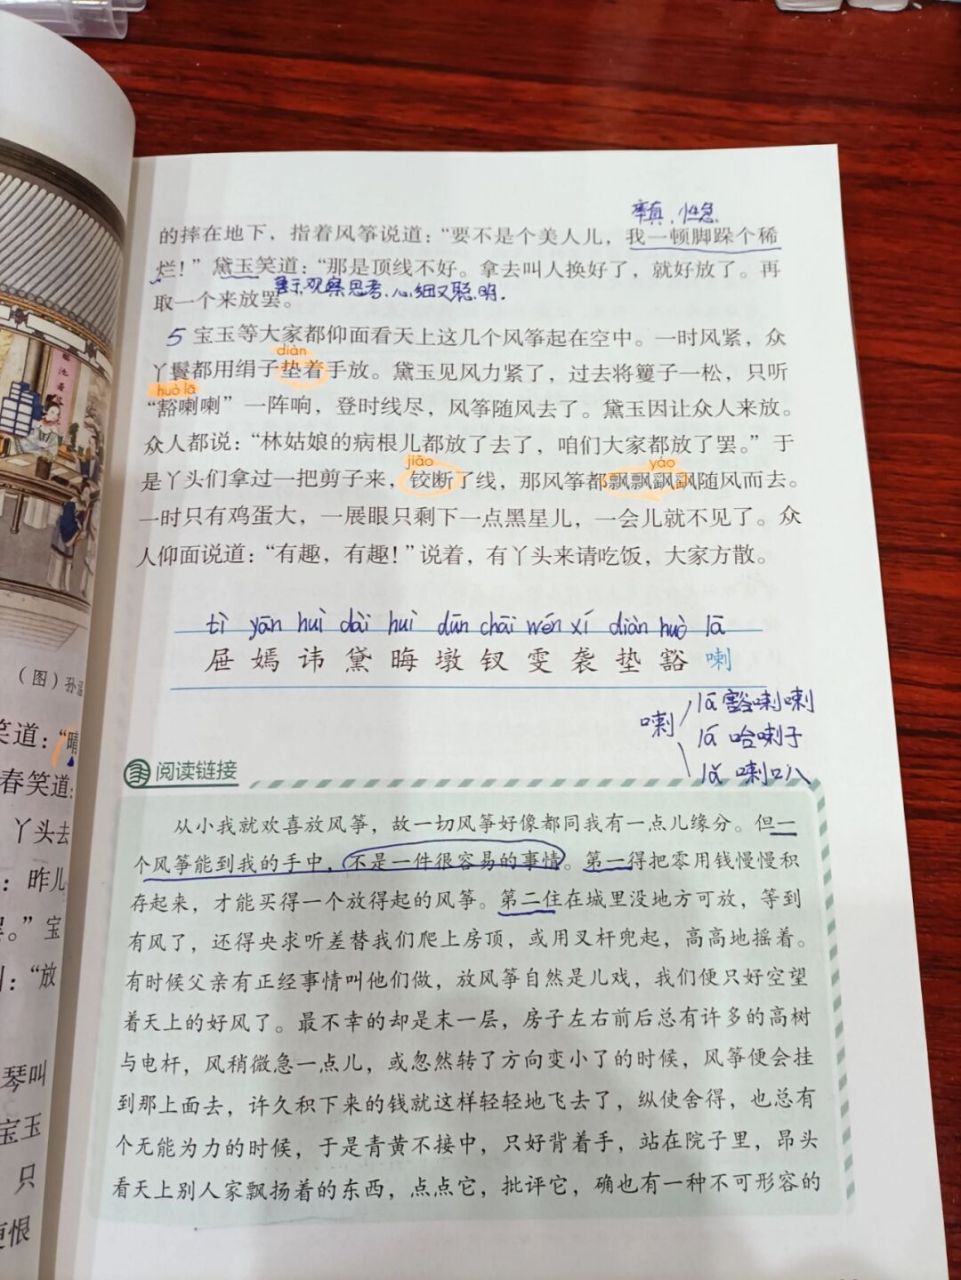 率真、性急
的摔在地下，指着风筝说道：“要不是个美人儿，我一顿脚跺个稀
烂！”黛玉笑道：“那是顶线不好。拿去叫人换好了，就好放了。再
观察思考、心细又聪明.
取一个来放罢。
5 宝玉等大家都仰面看天上这几个风筝起在空中。一时风紧，众
diàn
丫鬟都用绢子垫着手放。黛玉见风力紧了，过去将籰子一松，只听
huò lā
“豁喇喇”一阵响，登时线尽，风筝随风去了。黛玉因让众人来放。
众人都说：“林姑娘的病根儿都放了去了，咱们大家都放了罢。”于
jiǎo yáo
是丫头们拿过一把剪子来，铰断了线，那风筝都飘飘飖飖随风而去。
一时只有鸡蛋大，一展眼只剩下一点黑星儿，一会儿就不见了。众
人仰面说道：“有趣，有趣！”说着，有丫头来请吃饭，大家方散。
tì yān huì dài huì dūn chāi wén xí diàn huò lā
屉 嫣 讳 黛 晦 墩 钗 雯 袭 垫 豁 喇
lā 豁喇喇
喇 lá 哈喇子
lǎ 喇叭
（图）孙温
笑道：“晴
春笑道：
丫头去
：昨儿
”宝
：“放
琴叫
宝玉
只
更恨
阅读链接
从小我就欢喜放风筝，故一切风筝好像都同我有一点儿缘分。但一
个风筝能到我的手中，不是一件很容易的事情。第一得把零用钱慢慢积
存起来，才能买得一个放得起的风筝。第二住在城里没地方可放，等到
有风了，还得央求听差替我们爬上房顶，或用叉杆兜起，高高地摇着。
有时候父亲有正经事情叫他们做，放风筝自然是儿戏，我们便只好空望
着天上的好风了。最不幸的却是末一层，房子左右前后总有许多的高树
与电杆，风稍微急一点儿，或忽然转了方向变小了的时候，风筝便会挂
到那上面去，许久积下来的钱就这样轻轻地飞去了，纵使舍得，也总有
个无能为力的时候，于是青黄不接中，只好背着手，站在院子里，昂头
看天上别人家飘扬着的东西，点点它，批评它，确也有一种不可形容的